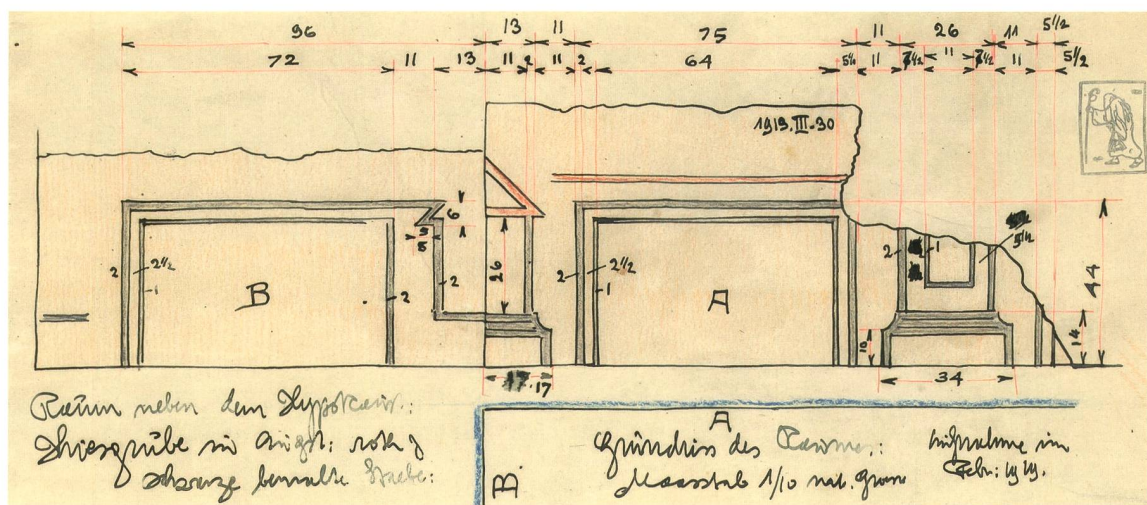 96 13 11 75 11 26 11 5 1/2
72 11 13 11 2 11 2 64 5 1/2 11 7 1/2 11 7 1/2 11 5 1/2
1919.III.30
6
5
2 2 1/2 1
B
2
2
26
2 2 1/2 1
A
2 1
5 1/2
44
14
10
17. 17
34
Raum neben dem Hypokaust.:
in Augst: roth &
schwarz bemalte
A
B
Grundriss des Raumes:
Maasstab 1/10 nat. Grösse
Aufnahme im
Febr: 1919.